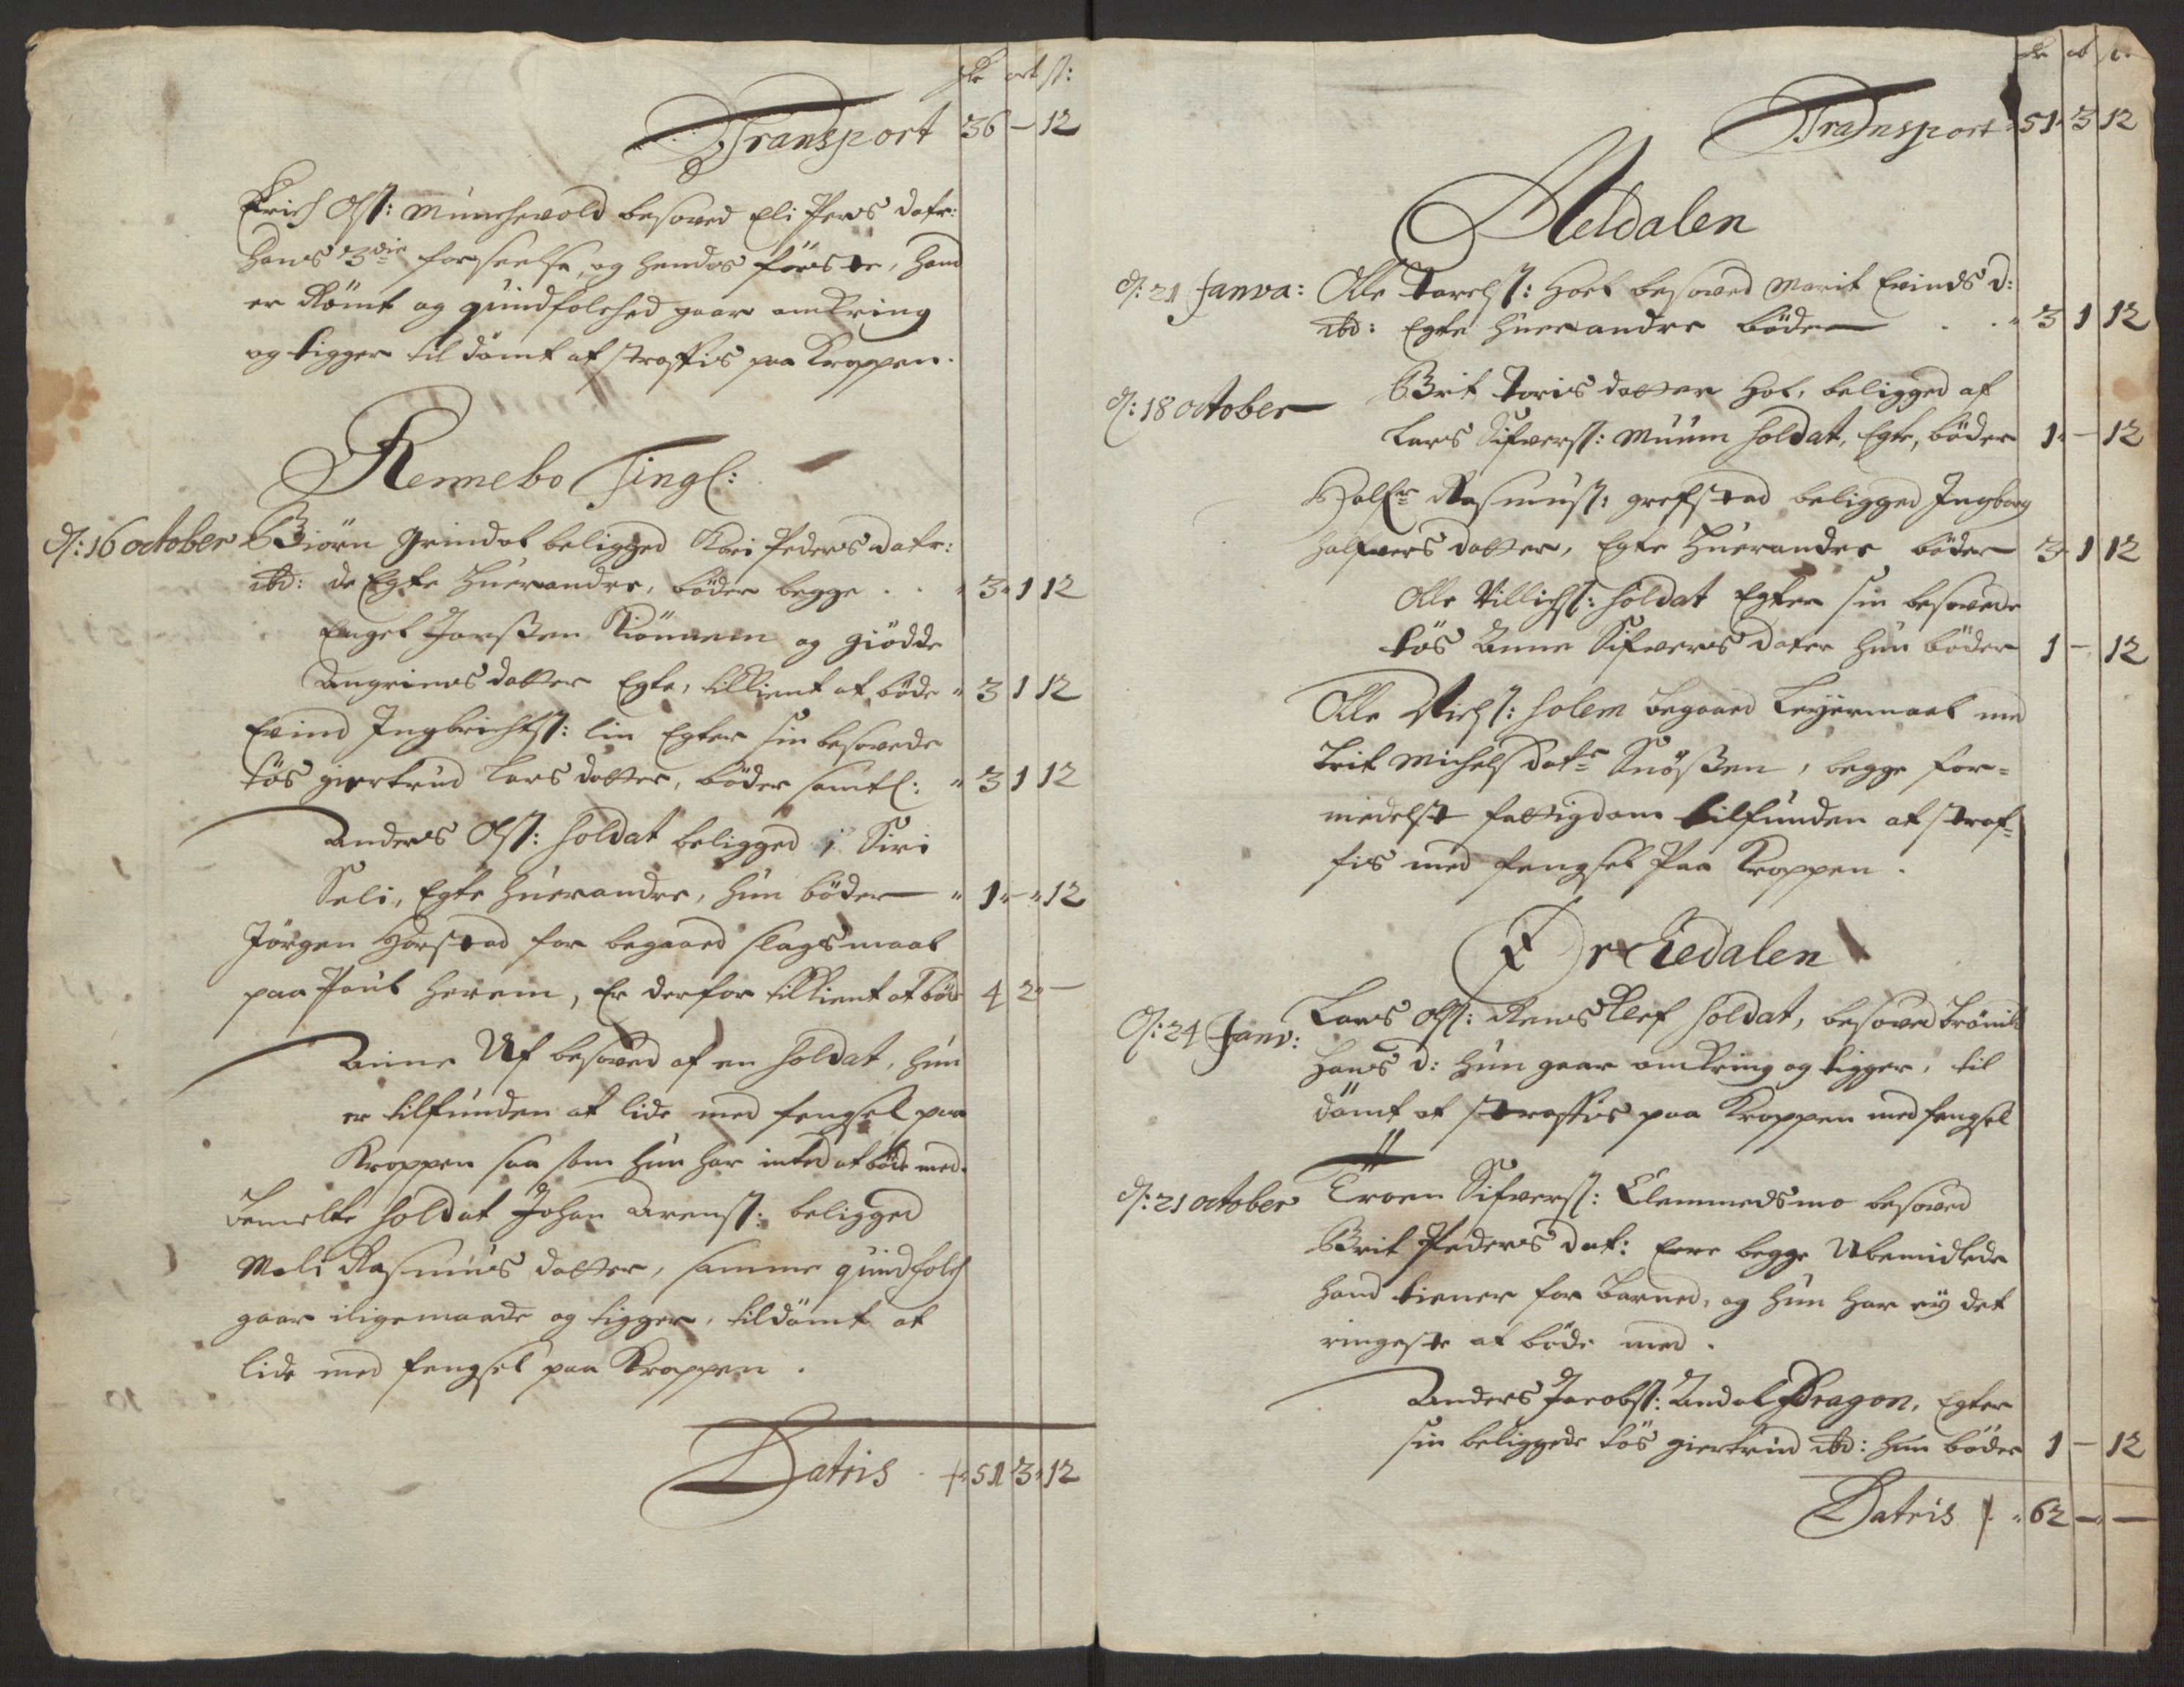 rdr ort s:
Transport 36 – 12
Erich Ols: Munchevold besoved Eli Pers datr:
hans 3die forseelse, og hendes förste, hand
er Römt og quindfolched gaar omkring
og tigger til dömt at straffis paa Kroppen.
Rennebo Tingl:
d: 16 october Biörn Grindal beligged Kari Peders datr:
ibd: de Egte hverandre, böder begge . . 3 1 12
Engel Joenßen og giödde
Angrims datter Egte, tilkient at böde 3 1 12
Evind Ingbrichts: lin Egter sin besovede
tös giertrud Lars datter, böder samtl: 3 1 12
Anders Ols: Soldat beligged Siri
Seli, Egte hverandre, hun böder 1 – 12
Jörgen Horstad for begaaed slagsmaal
paa Poul Herrem, Er derfor tilkient at böde 4 2 –
Anne Uf besoved af en Soldat, hun
er tilfunden at lide med fengsel paa
Kroppen saa som hun har inted at böde med.
Bemelte Soldat Johan Arens: beligged
Mali Rasmus datter, samme quindfolch
gaar iligemaade og tigger, tildömt at
lide med fengsel paa Kroppen.
Latris 51 3 12
rdr ort s:
Transport 51 3 12
Meldalen
d: 21 Janva: Olle Torels: Hoel besoved Marit Evinds d:
ibd: Egte hverandre böder . . 3 1 12
d: 18 october Brit Toris datter Hol, beligged af
Lars Sifvers: Muum Soldat, Egte, böder 1 – 12
Halfr Rasmus: grefstad beligged Ingborg
halfvers datter, Egte hverandre böder 3 1 12
Olle Villichs: Soldat Egter sin besovede
tös Anne Sifvers dater hun böder 1 – 12
Olle Nichs: Solem begaaed Leyermaal med
Brit Michels datr Snößen, begge for-
medelst fattigdom tilfunden at straf-
fis med fengsel Paa Kroppen.
Orchedalen
d: 24 Janv: Lars Ols: Rensklef Soldat, besoved
Hans d: hun gaar omkring og tigger, til
dömt at straffis paa Kroppen med fengsel
d: 21 october Troen Sifvers: Clemmedsmo besoved
Brit Peders dat: Ere begge Ubemidlede
hand tiener for Barned, og hun har ey det
ringeste at böde med.
Anders Jacobs: Andal Dragon, Egter
sin beliggede tös giertrud ibd: hun böder 1 – 12
Latris 62 – –